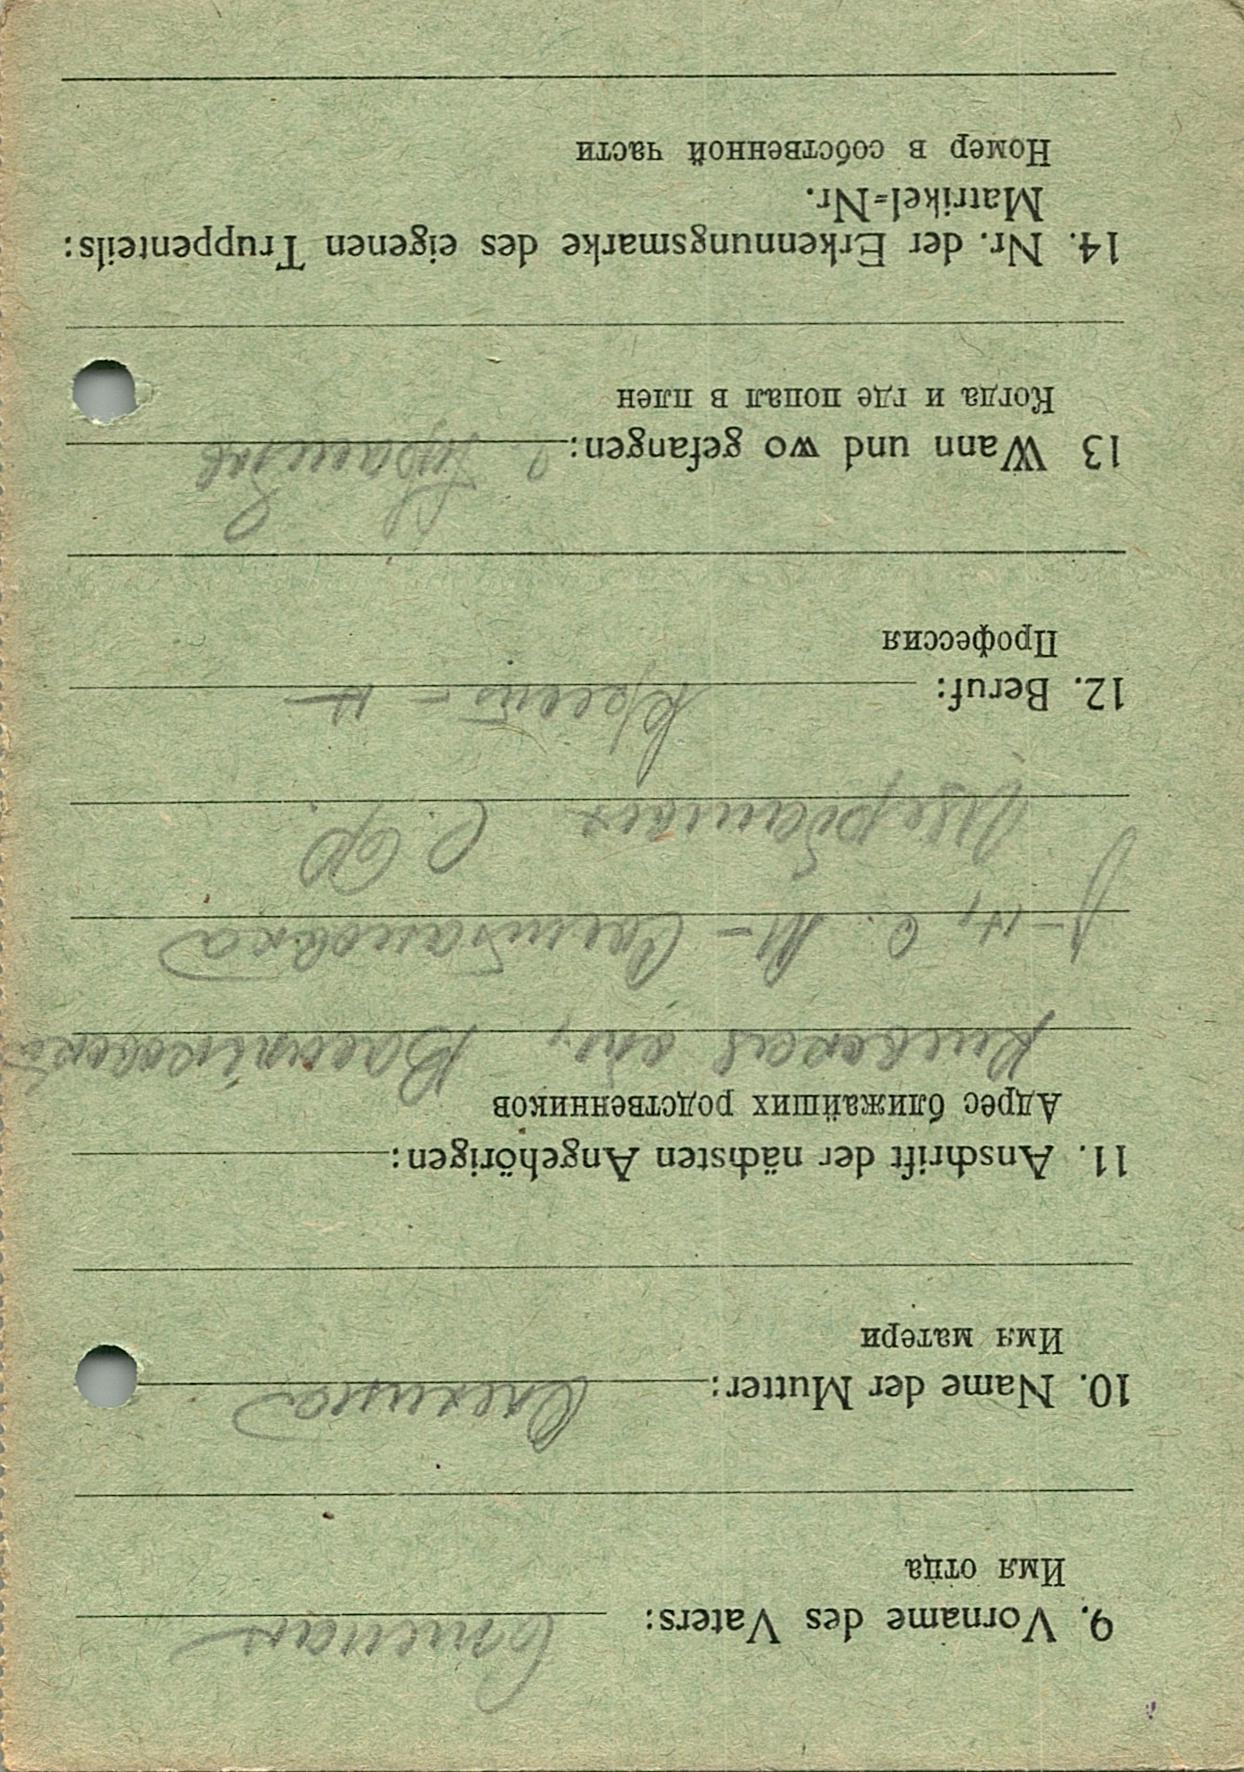 9. Vorname des Vaters: Степан
Имя отца
10. Name der Mutter:
Имя матери
11. Anschrift der nächsten Angehörigen:
Адрес ближайших родственников
Киевская обл,
р-н, с. М-
С. Ф.
12. Beruf: Крест-н
Профессия
13 Wann und wo gefangen:
Когда и где попал в плен
14. Nr. der Erkennungsmarke des eigenen Truppenteils:
Matrikel-Nr.
Номер в собственной части